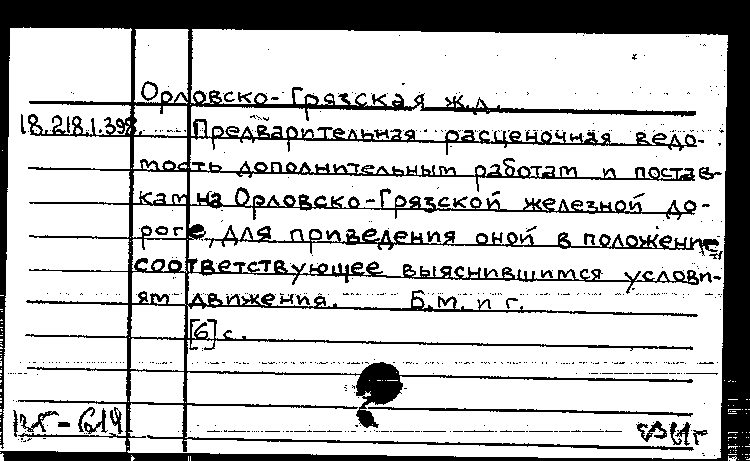 Орловско-Грязская ж.д.
18.218.1.398. Предварительная расценочная ведо-
мость дополнительным работам и постав-
кам на Орловско-Грязской железной до-
роге, для приведения оной в положение
соответствующее выяснившимся услови-
ям движения. Б.м. и г.
[6] с.